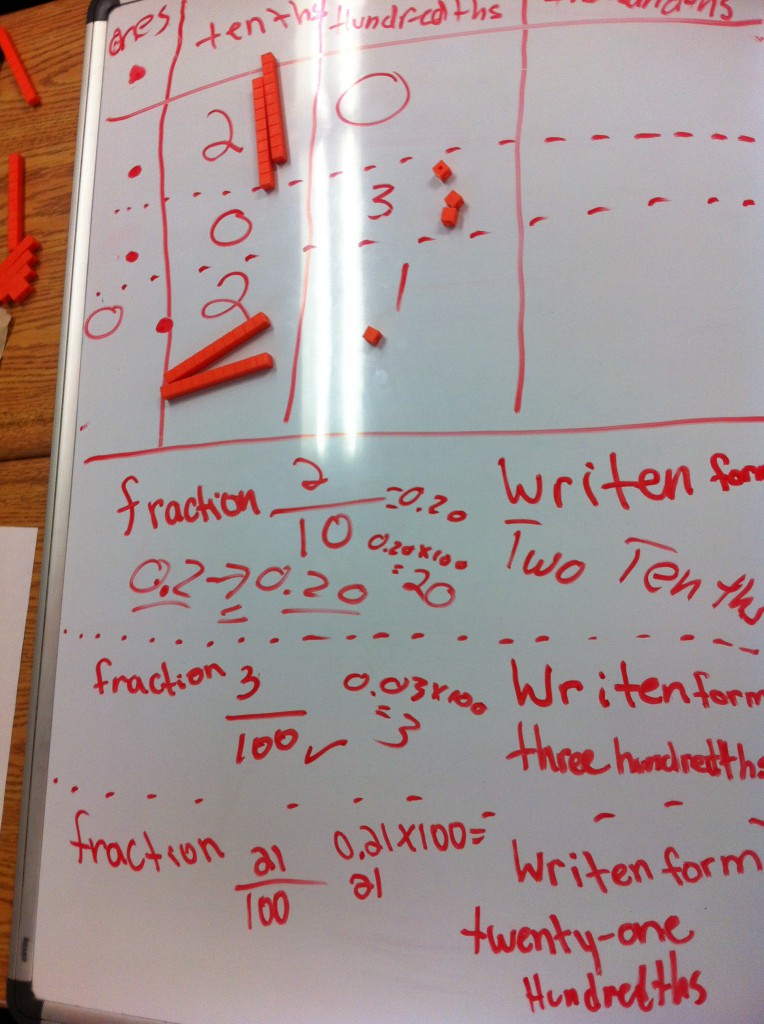 ones tenths Hundredths
2 0
0 3
0 . 2 1
fraction 2/10 =0.20 Writen form
0.2→0.20 0.20x100 =20 Two Tenths
fraction 3/100 ✓ 0.03x100 =3 Writen form
three hundredths
fraction 21/100 0.21x100= 21 Writen form
twenty-one
Hundredths